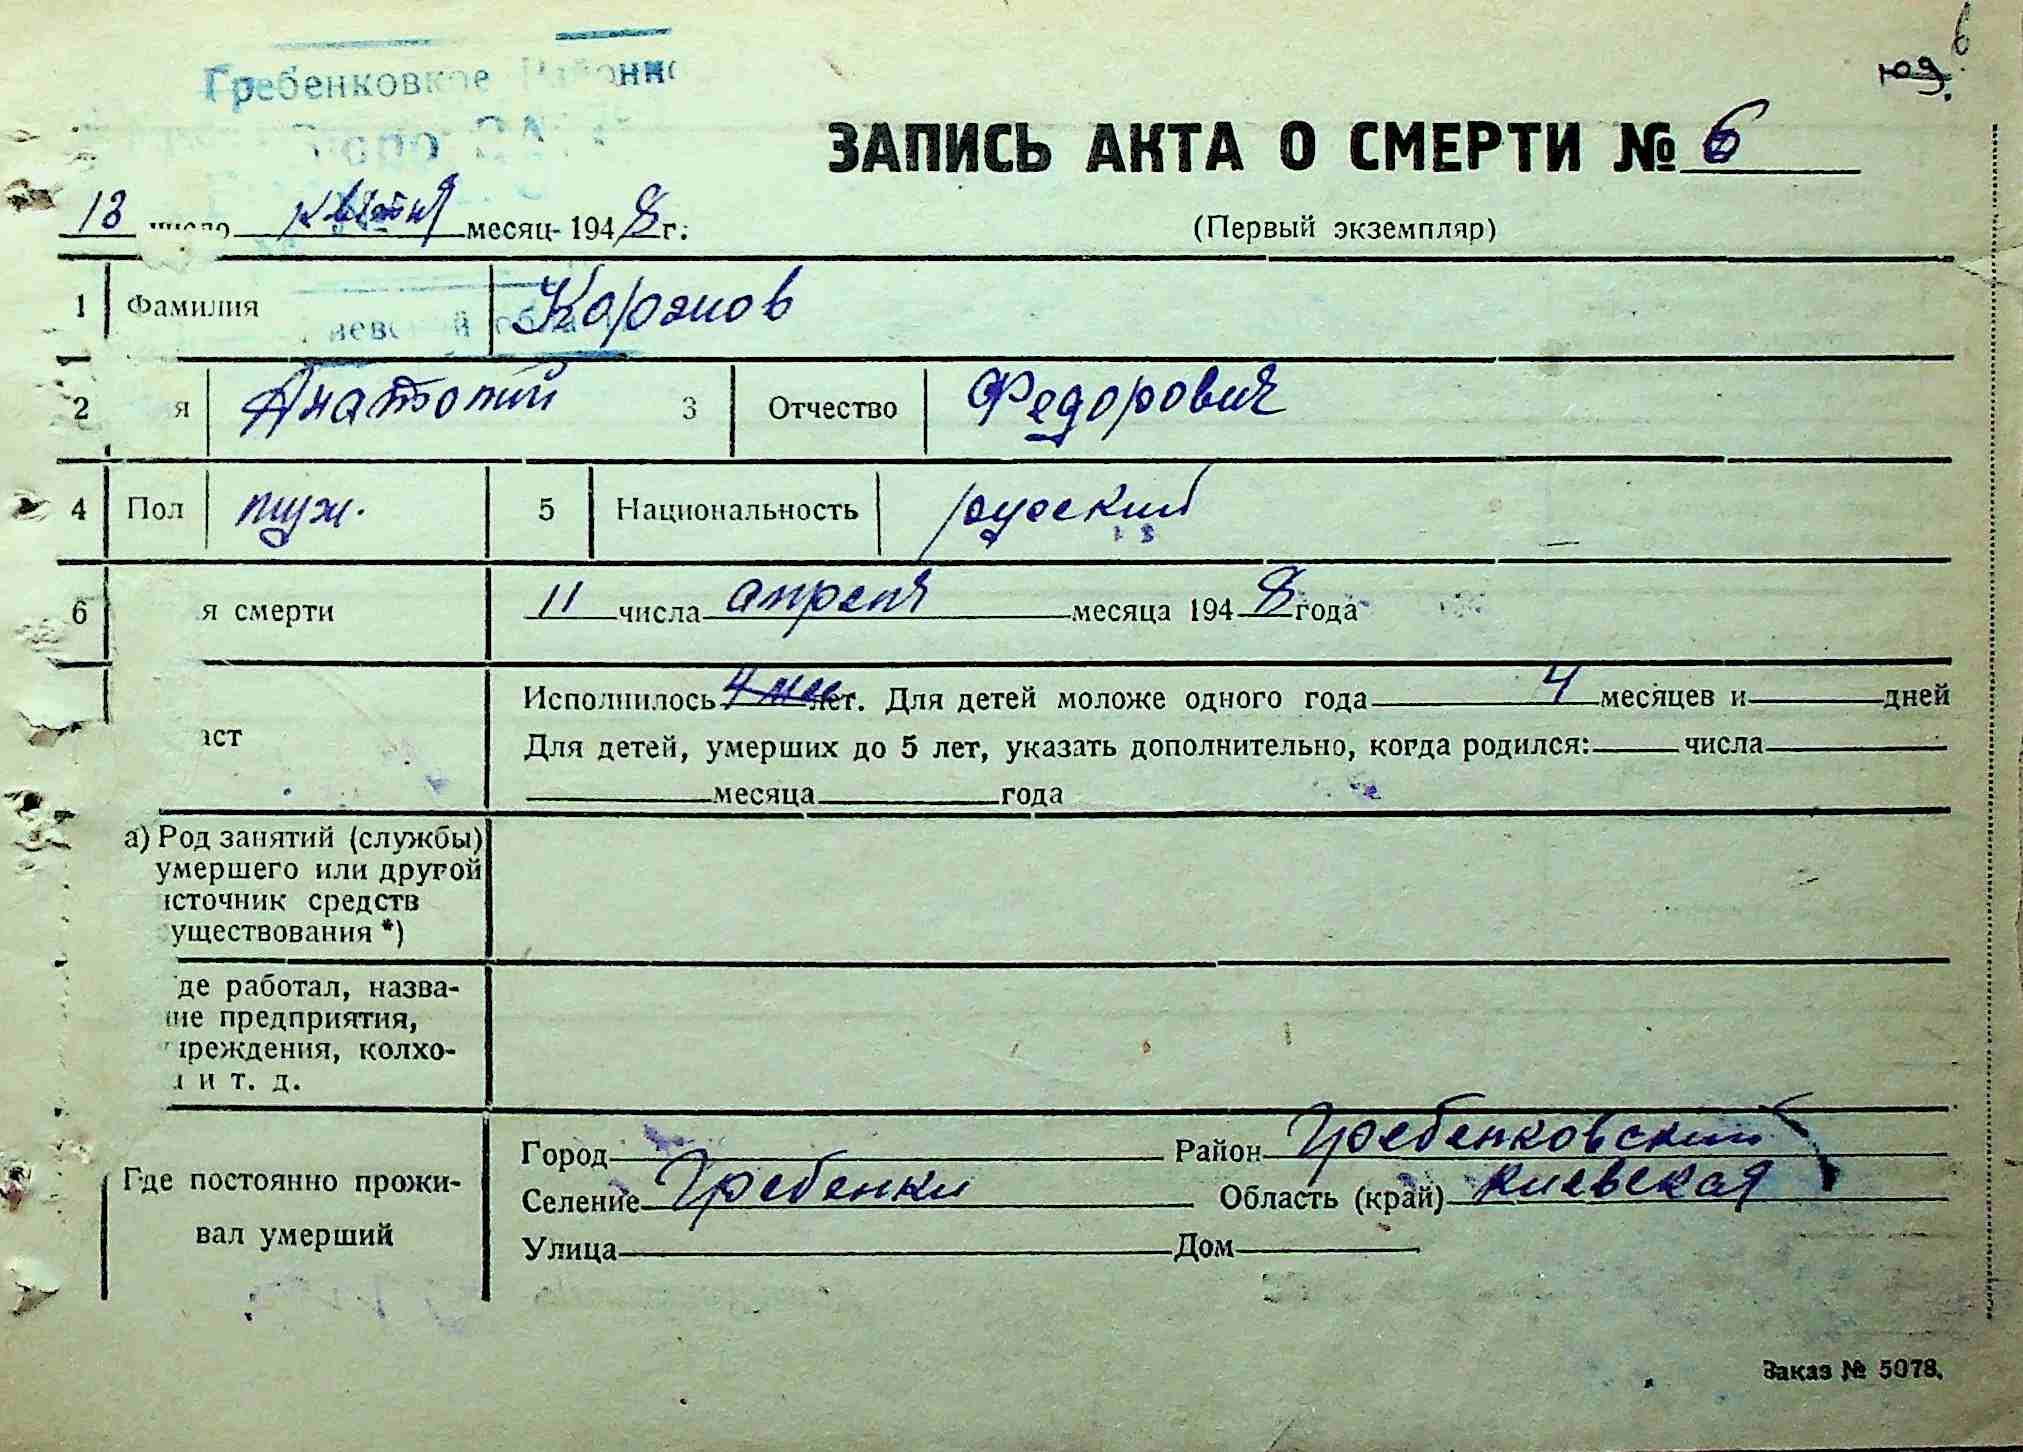 юд. 6
Гребенковкое Районно
ЗАПИСЬ АКТА О СМЕРТИ № 6
13 число квітня месяц 1948 г.
(Первый экземпляр)
1 Фамилия
2 я Анатолий 3 Отчество Федорович
4 Пол муж. 5 Национальность русский
6 я смерти 11 числа апреля месяца 1948 года
Исполнилось 4 мес лет. Для детей моложе одного года 4 месяцев и дней
аст
Для детей, умерших до 5 лет, указать дополнительно, когда родился: числа
месяца года
а) Род занятий (службы)
умершего или другой
источник средств
уществования *)
де работал, назва-
ние предприятия,
чреждения, колхо-
а и т. д.
Город Район Гребенковский
Где постоянно прожи-
Селение Гребенки Область (край) Киевская
вал умерший
Улица Дом
Заказ № 5078.